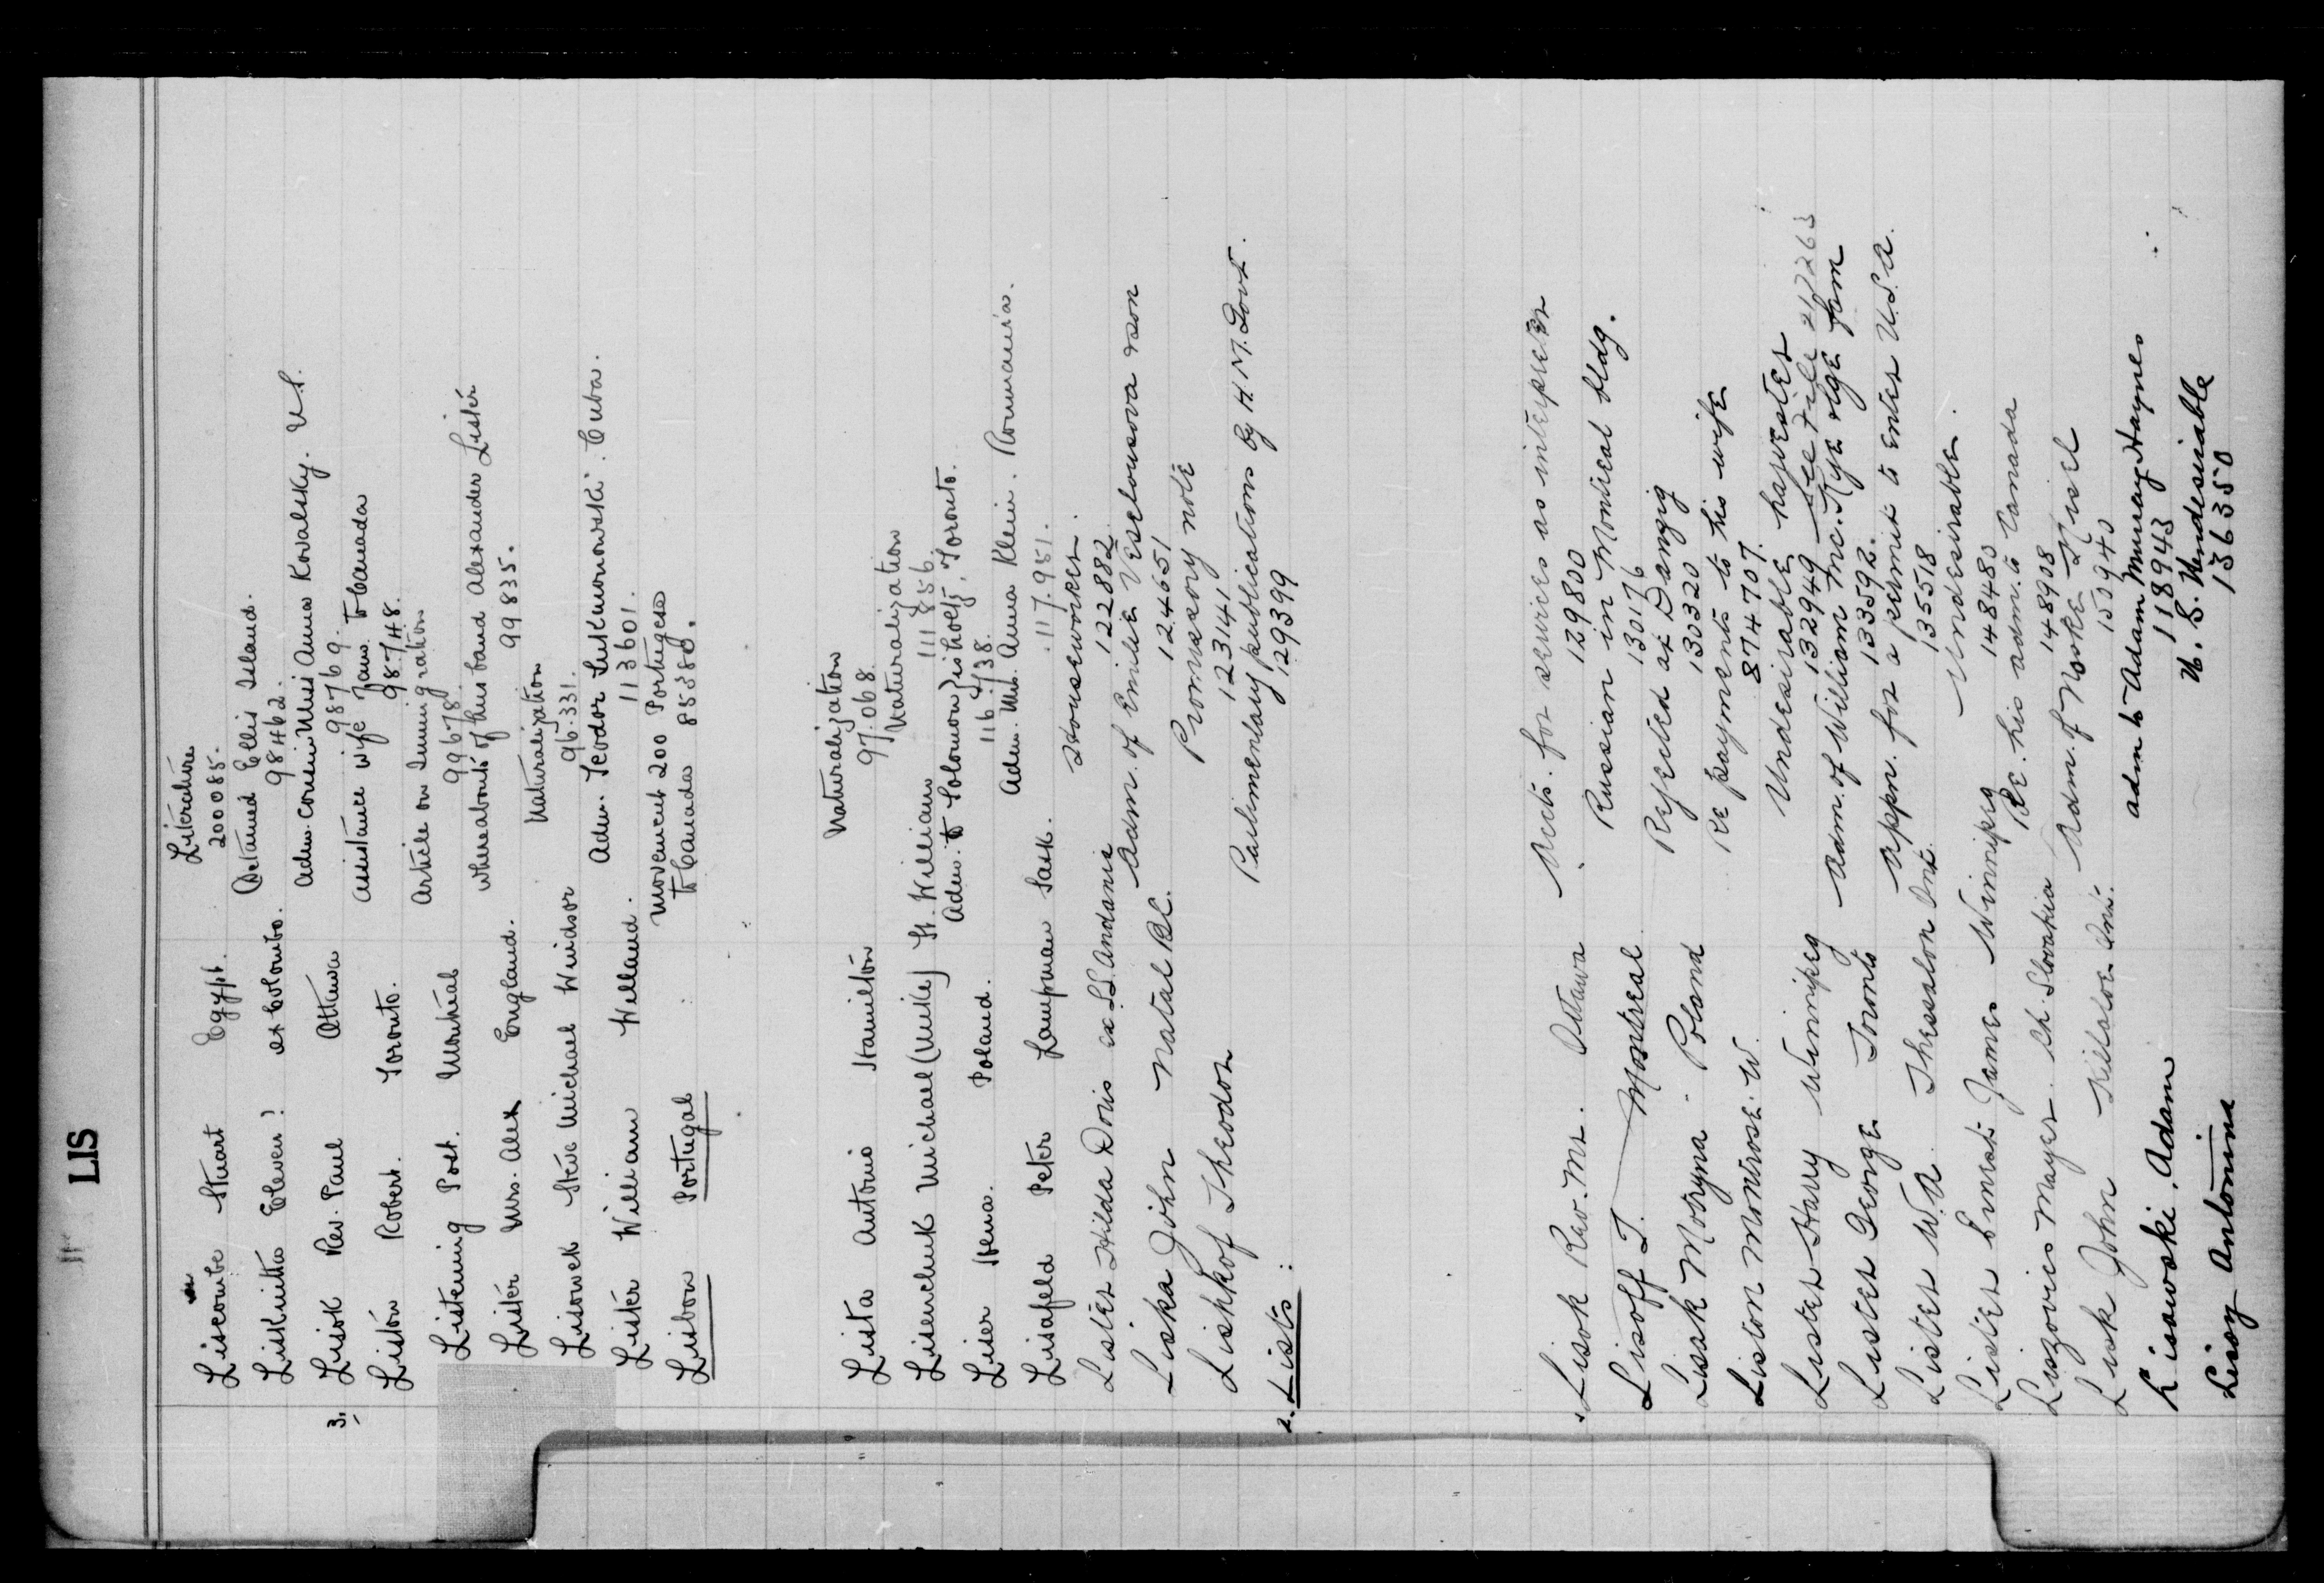 LIS
Liscombe Stuart Egypt. Literature
200085.
Liskutto Eleven? ex Colombo. Detained Ellis Island.
98462.
3. Lisok Rev. Paul Ottawa Adm. cousin Miss Anna Kovalsky. U.S.
98769.
Liston Robert. Toronto. Assistance wife & fam. to Canada
98748.
Listening Post. Montreal Article on Immigration
99678.
Lister Mrs. Alex England. Whereabouts of husband Alexander Lister
99835.
Lisowek Steve Michael Windsor Naturalization
96331.
Lister William Welland. Adm. Teodor Lukianowski. Cuba.
113601.
Lisbon Portugal movement 200 Portugese
to Canada 85380.
Lista Antonio Hamilton Naturalization
97068.
Lisenchuk Michael (Mike) Ft. William Naturalization
111856.
Liser Hena. Poland. Adm. to Solomon Lisholtz, Toronto.
116738.
Lisafeld Peter Lampman Sask. Adm. Mrs. Anna Klein. Roumania.
117951.
Lister Hilda Doris ex S.S. Andania Houseworker.
122882
Liska John Natal B.C. Adm. of Emilie Veselousova & son
124651
Liskkof Theodor Promissory note
123141
2. Lists: Parlimentary publications by H.M. Govt.
129399
Lisok Rev. Mr. Ottawa Accts. for services as interpreter
129800
Lisoff T. Montreal Russian in Montreal bldg.
130176
Lissk Motryna Poland Rejected at Danzig
130320
Liston Montrose. W. Re payments to his wife
874707.
Lister Harry Winnipeg Undesirable harvester
132949 See File 217263
Lister George Toronto Adm. of William Mc. Kye & lge fam
133592.
Lister W.A. Thessalon Ont. Appn. for a permit to enter U.S.A.
135518
Lister Ernest James Winnipeg Undesirable.
148480
Liszovics Mayer. Ch. Slovakia Re. his adm. to Canada
148908
Lisk John Killaloe Ont. Adm. of
150940
Lisowski, Adam adm to Adam Murray Haynes
118943
Lisoy Antonina U. S. Undesirable
136350